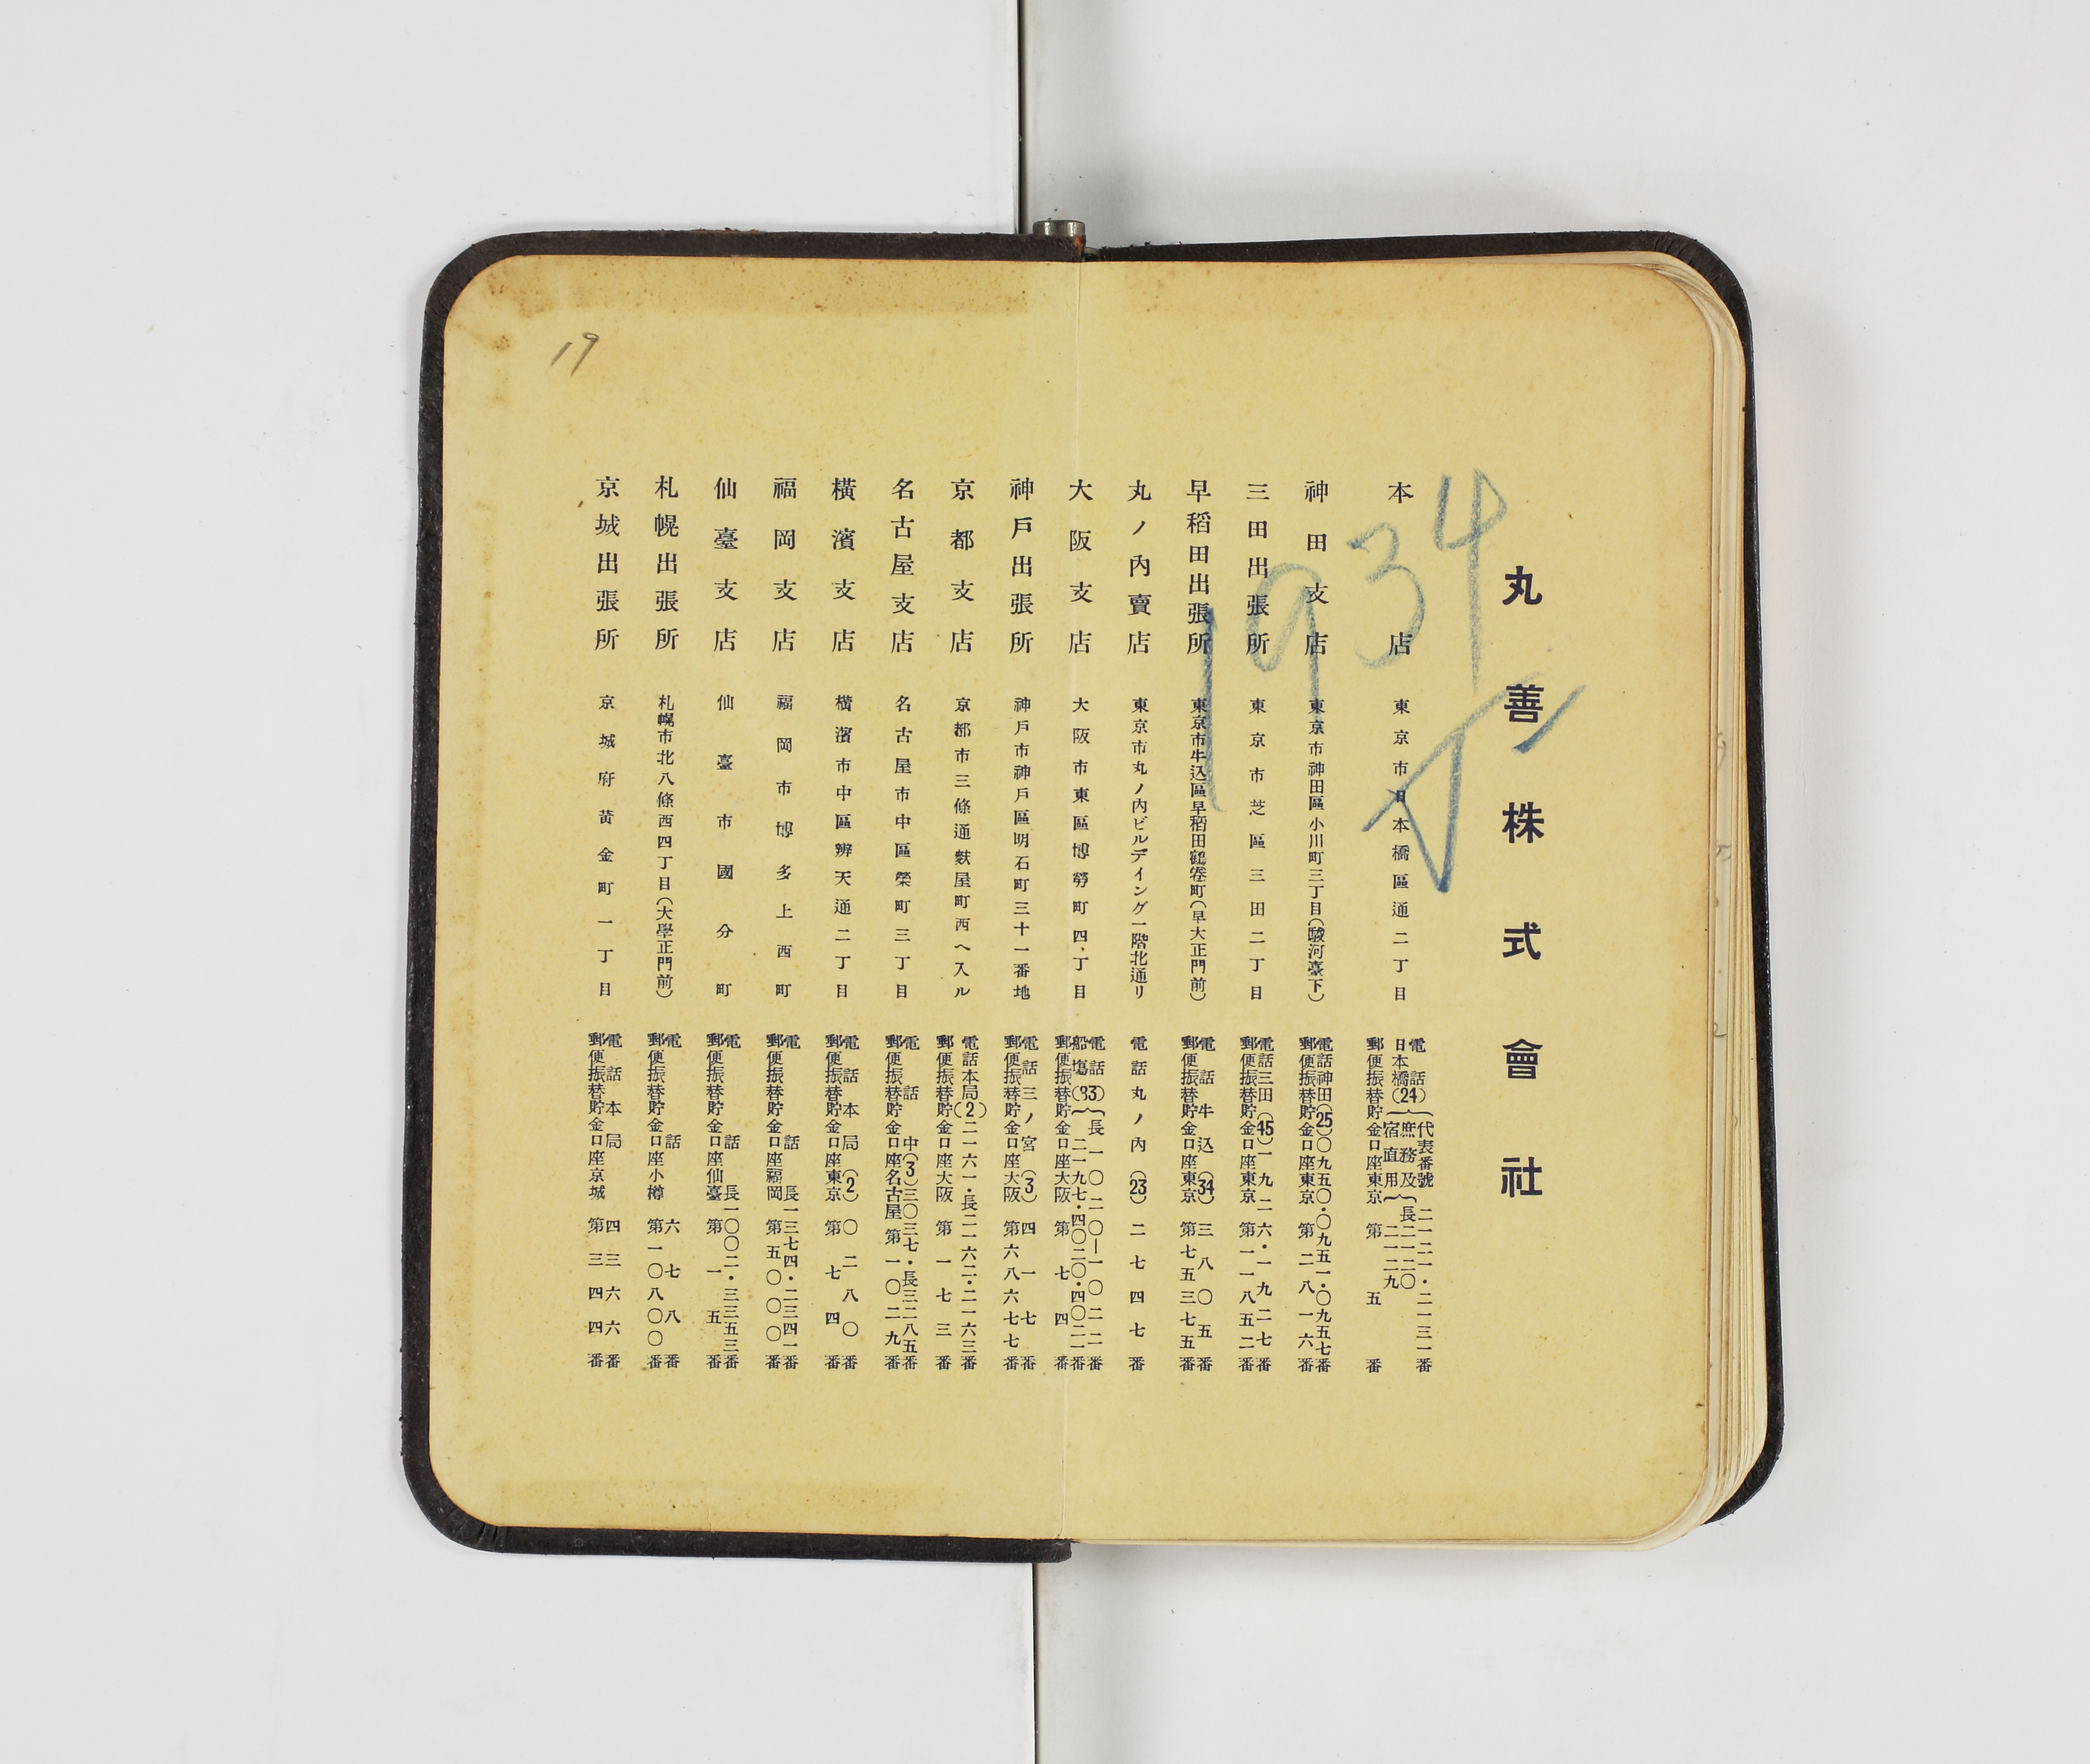 丸善株式會社
1934
本店 東京市日本橋區通二丁目
電話日本橋(24)
代表番號 二一二一・二一三一番
庶務及宿直用 長二一二〇 二一二九
郵便振替貯金口座東京 第五番
神田支店 東京市神田區小川町三丁目(駿河臺下)
電話神田(25)〇九五〇・〇九五一・〇九五七番
郵便振替貯金口座東京 第二八一六番
三田出張所 東京市芝區三田二丁目
電話三田(45)一九二六・一九二七番
郵便振替貯金口座東京 第一一八五二番
早稻田出張所 東京市牛込區早稻田鶴卷町(早大正門前)
電話牛込(34)三八〇五番
郵便振替貯金口座東京 第七五三七五番
丸ノ內賣店 東京市丸ノ內ビルデイング一階北通リ
電話丸ノ內(23)二七四七番
大阪支店 大阪市東區博勞町四丁目
電話船塲(83) 長一〇二〇―一〇二二番
二一九七・四〇二〇・四〇二一番
郵便振替貯金口座大阪 第七四番
神戶出張所 神戶市神戶區明石町三十一番地
電話三ノ宮(3)四一七番
郵便振替貯金口座大阪 第六八六七七番
京都支店 京都市三條通麩屋町西ヘ入ル
電話本局(2)二一六一・長二一六二・二一六三番
郵便振替貯金口座大阪 第一七三番
名古屋支店 名古屋市中區榮町三丁目
電話中(3)三〇三七・長三二八五番
郵便振替貯金口座名古屋 第一〇二九番
橫濱支店 橫濱市中區辨天通二丁目
電話本局(2)〇二八〇番
郵便振替貯金口座東京 第七四番
福岡支店 福岡市博多上西町
電話 長一三七四・二三四一番
郵便振替貯金口座福岡 第五〇〇〇番
仙臺支店 仙臺市國分町
電話 長一〇〇二・三三五三番
郵便振替貯金口座仙臺 第一五番
札幌出張所 札幌市北八條西四丁目(大學正門前)
電話 六七八番
郵便振替貯金口座小樽 第一〇八〇〇番
京城出張所 京城府黃金町一丁目
電話本局 四三六六番
郵便振替貯金口座京城 第三四四番
19